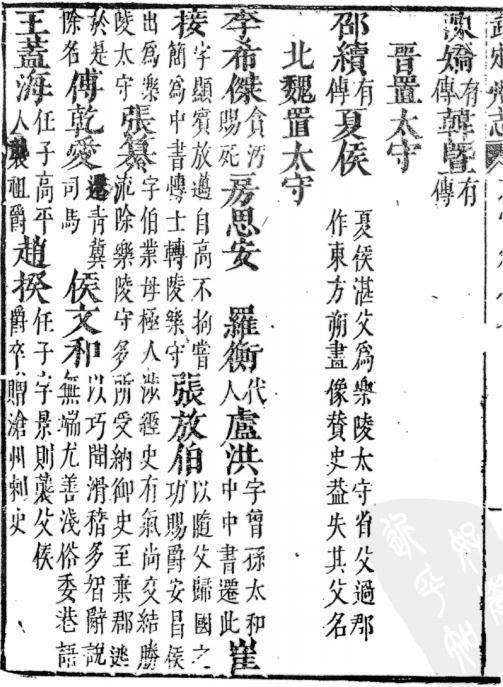 嬌有傳韓暨有傳
晉置太守
邵續有傳夏侯夏侯湛父爲樂陵太守省父過郡作東方朔畫像贊史葢失其父名
北魏置太守
李希傑貪汚賜死房思安 羅衡代人盧洪字曾孫太和中中書遷此崔
接字顯賓放邁自高不拘嘗簡爲中書博士轉陵樂守張放伯以隨父歸國之功賜爵安昌侯
出爲樂陵太守張纂字伯業母極人涉經史有氣尚交結勝流除樂陵守多所受納御史至棄郡逃
於是除名傅乾愛還青冀司馬侯文和以巧聞滑稽多智辭說無端尤善淺俗委巷語
王蓋海任子高平人襲祖爵趙揆任子字景則襲父侯爵卒贈滄州刺史